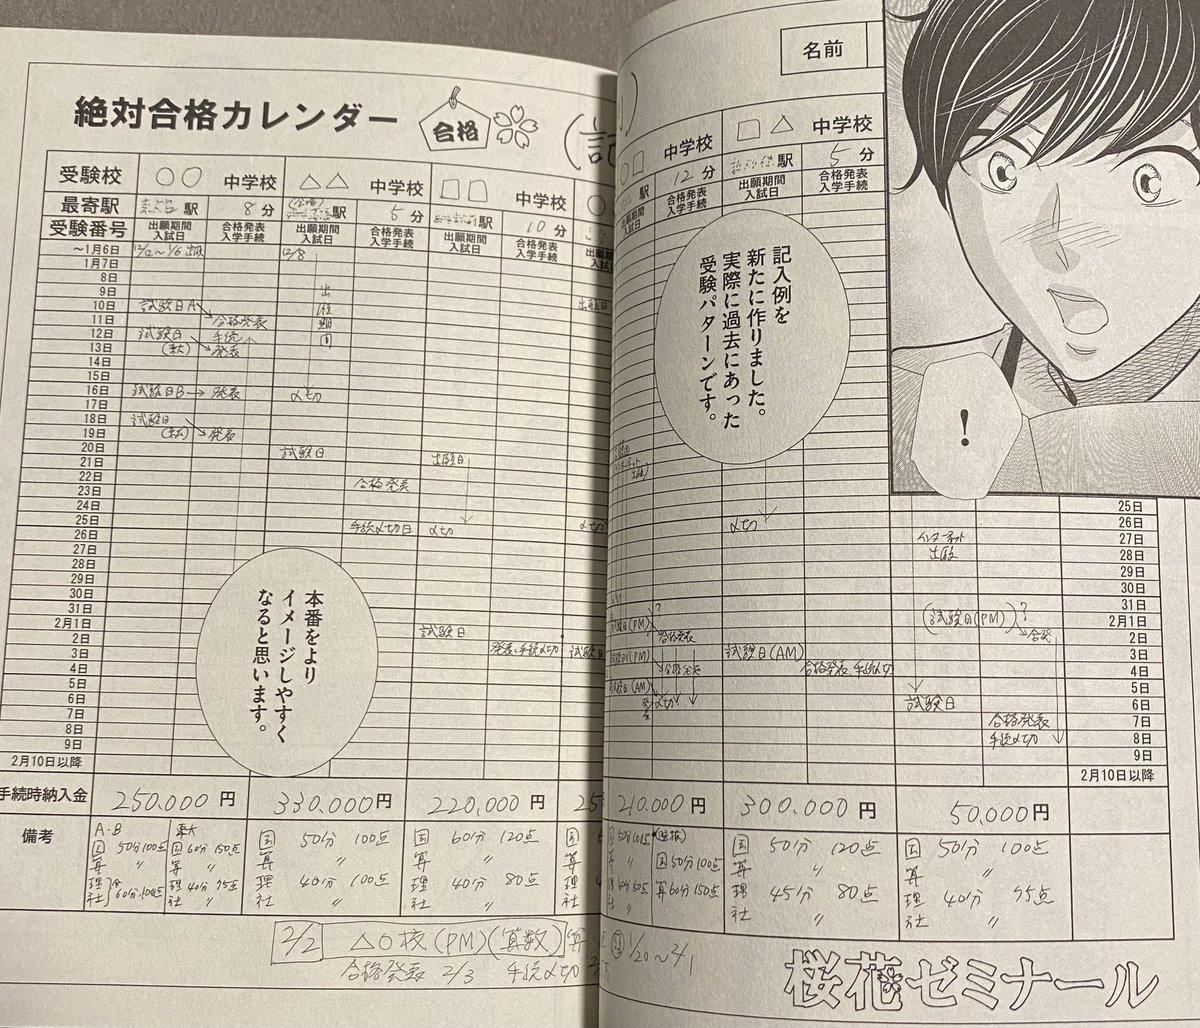 絶対合格カレンダー
合格
(記
名前
受験校 ○○ 中学校 △△ 中学校 □□ 中学校
□△ 中学校
中学校
最寄駅 駅 8分 駅 5分 駅 10分
駅 12分 駅 5分
受験番号 出願期間 入試日 合格発表 入学手続 出願期間 入試日 合格発表 入学手続 出願期間 入試日 合格発表 入学手続
合格発表 入学手続 出願期間 入試日 合格発表 入学手続
～1月6日 12/8
1月7日
8日
9日 出
10日 試験日A
11日 合格発表
12日 試験日 手続
13日 発表
14日
15日
16日 試験日B→発表 〆切
17日
18日 試験日
19日 発表
20日 試験日
21日 出願日
22日
23日 合格発表
24日
25日
26日 手続〆切日 〆切
27日
28日
29日
30日
31日
2月1日
2日 試験日
3日 発表、手続〆切
4日
5日
6日
7日
8日
9日
2月10日以降
記入例を
新たに作りました。
実際に過去にあった
受験パターンです。
！
本番をより
イメージしやすく
なると思います。
25日
〆切 26日
インターネット 27日
出願 28日
29日
30日
31日
(試験日(PM))? 2月1日
合格発表 合発 2日
試験日(AM) 3日
合格発表、手続〆切 4日
5日
試験日 6日
合格発表 7日
手続〆切 8日
9日
2月10日以降
手続時納入金 250,000円 330,000円 220,000円
210,000円 300,000円 50,000円
備考
A・B
国 50分 100点
算 〃
理
社
60分 100点
東大
国 60分 150点
算 〃
理 40分 75点
社 〃
国 50分 100点
算 〃
理 40分 100点
社 〃
国 60分 120点
算 〃
理 40分 80点
社 〃
国 50分 100点
算 60分 150点
国 50分 120点
算 〃
理 45分 80点
社 〃
国 50分 100点
算 〃
理 40分 75点
社 〃
2/2 △○校(PM)(算数)
合格発表 2/3 手続〆切
1/20～2/1
桜花ゼミナール